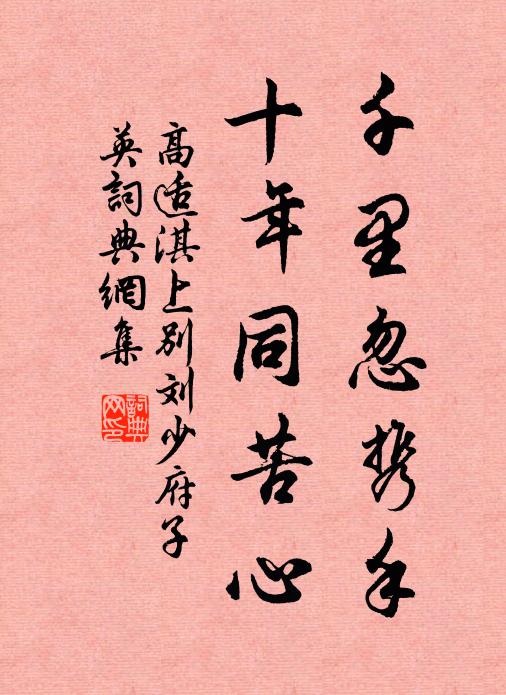 千里忽携手
十年同苦心
高适淇上別刘少府子
英詞典網集
詞典
网印